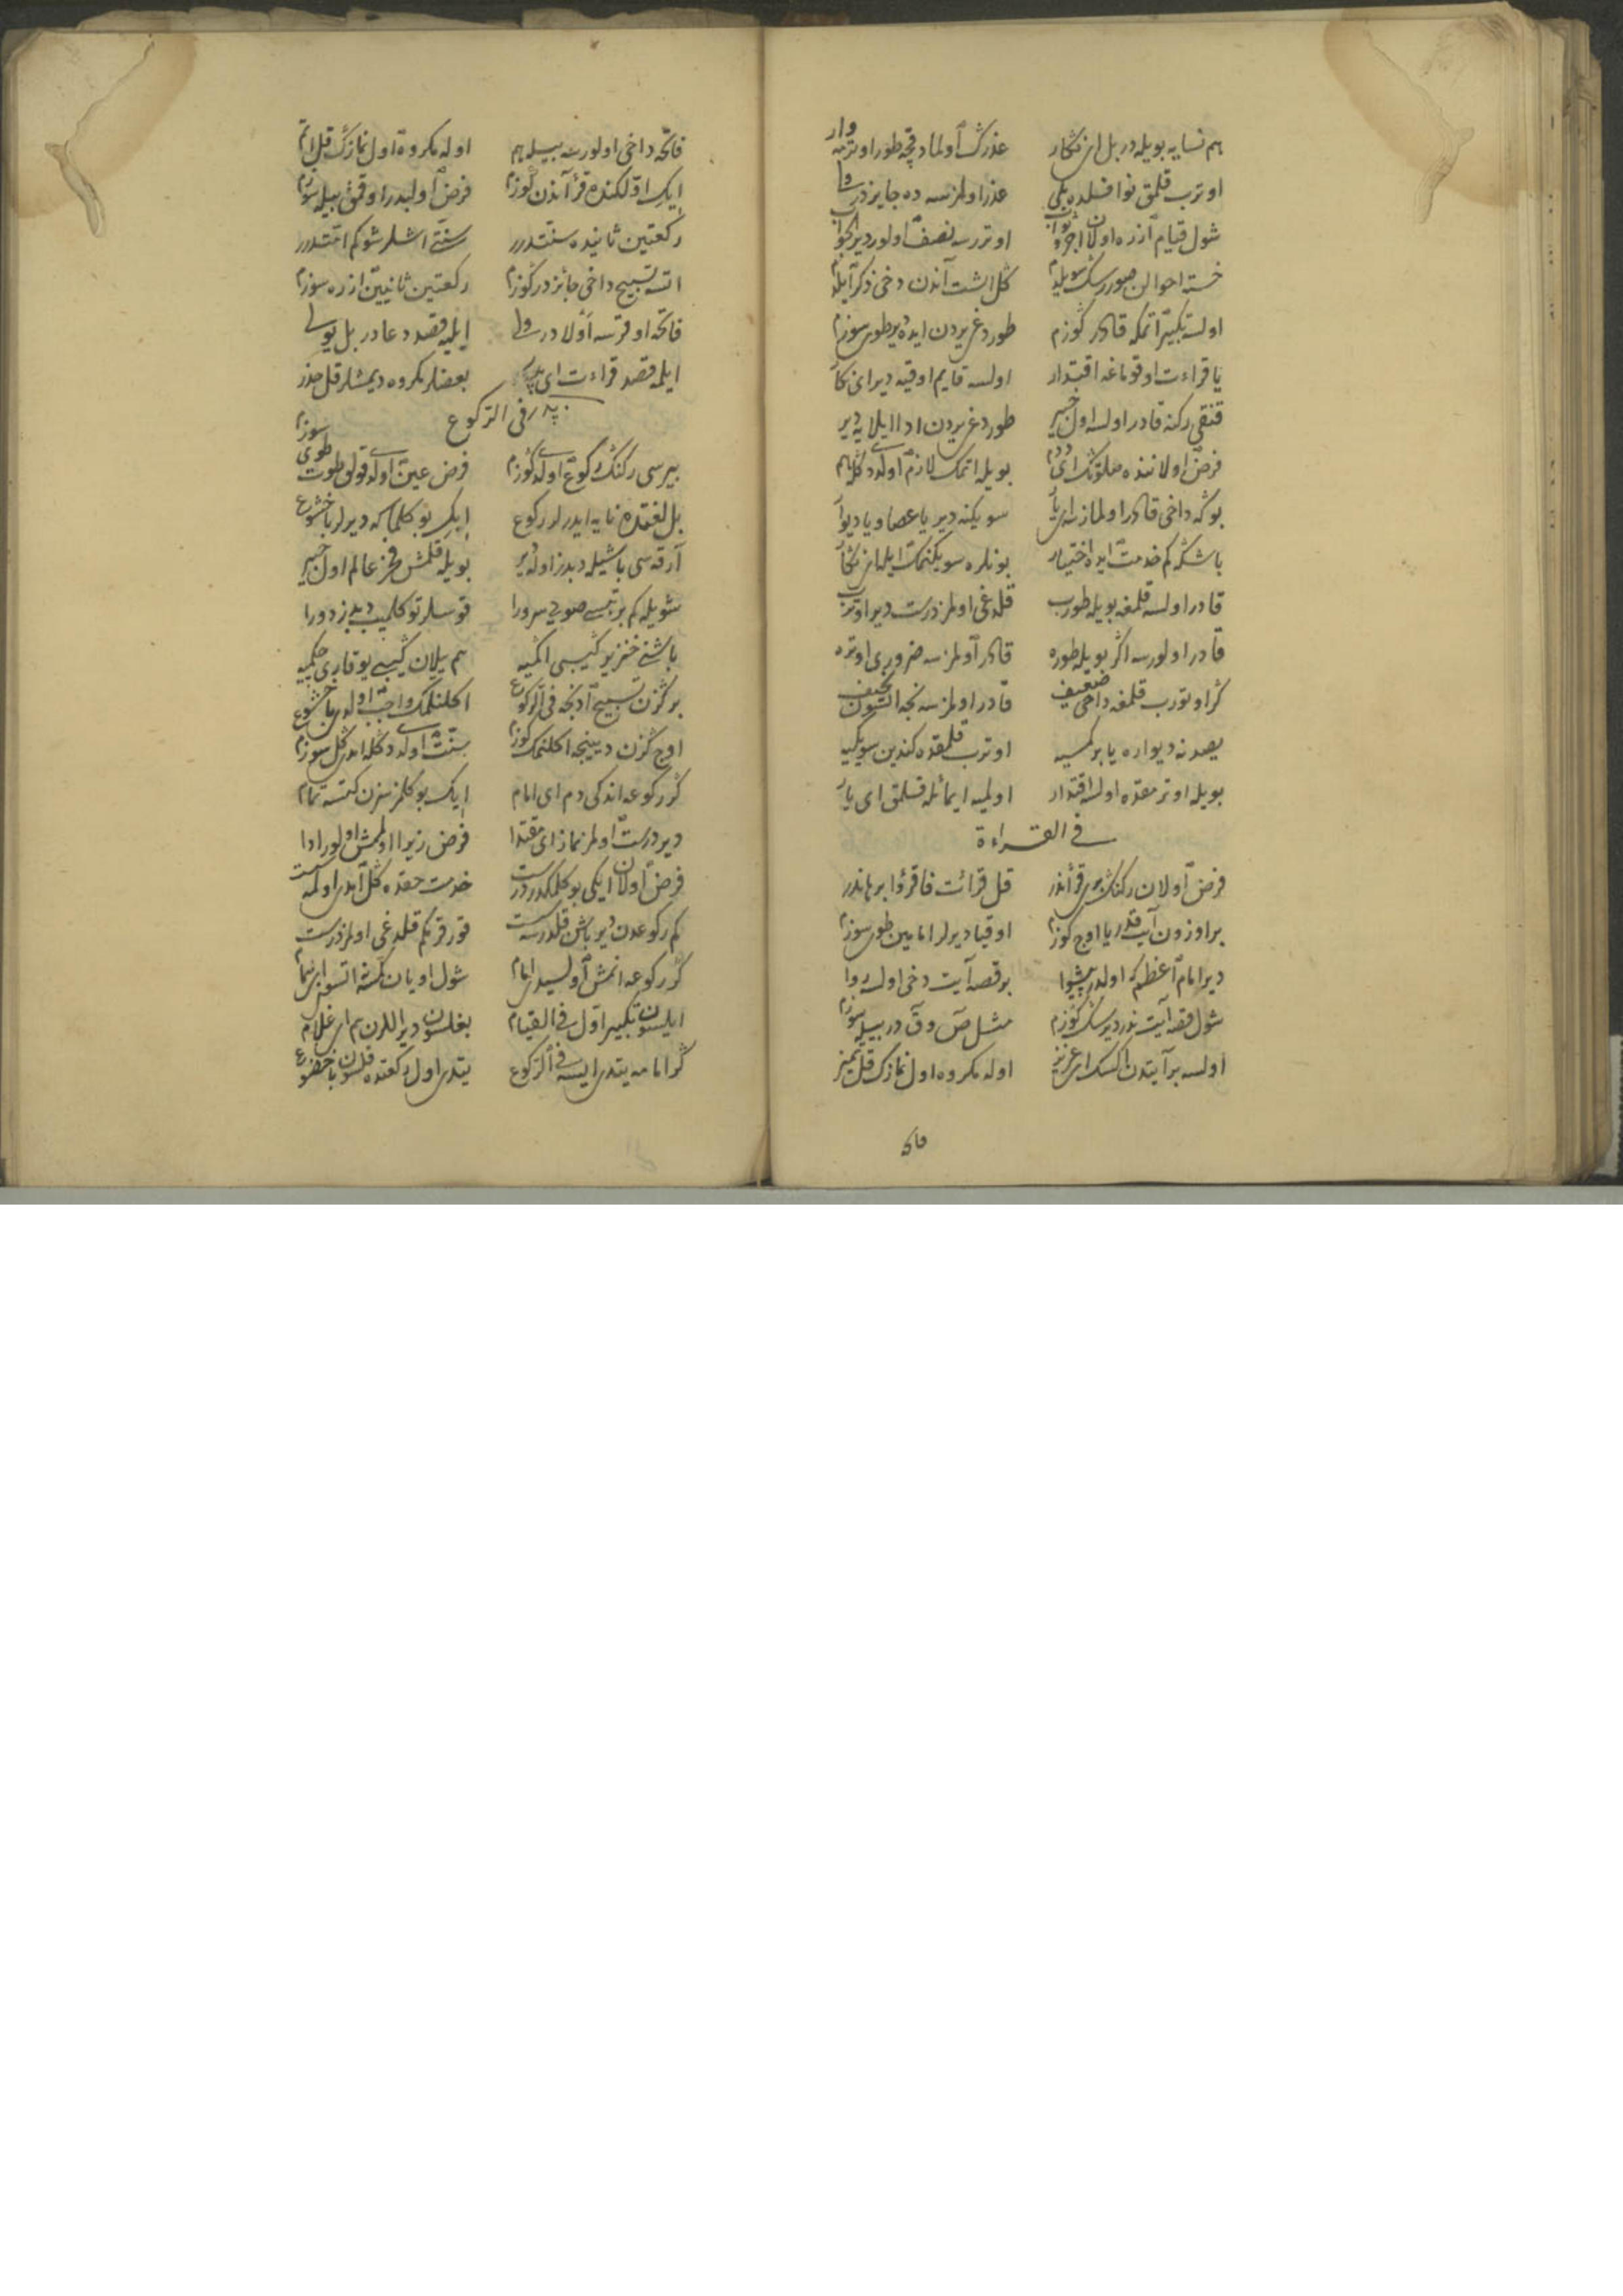 هم نسایه بویله در بل ای نگار عذرك اولمادقچه طور اوترمه وار
اوترب قلمق نوافلده بلی عذر اولمزسه ده جایزدر ولی
شول قیام ازره اولان اجر و ثواب اوتررسه نصف اولور دیر
خسته احوالن صوررسك سویلیم كل اشت آندن دخی ذكر ایلیم
اولسه تكبیر اتمكه قادر كوزم طور دغریدن ایده دیر طوی سوزم
یا قراءت اوقوماغه اقتدار اولسه قایم اوقیه دیر ای نكار
قنقی ركنه قادر اولسه اول خبیر طور دغریدن ادا ایلایه دیر
فرض اولاننده صلوتك ای ددم بویله اتمك لازم اولدی دكله هم
بوكه داخی قادر اولمازسه ای یار سویكنه دیر یا عصا و یا دیوار
باشكه كم خدمت ایده اختیار بونلره سویكنمك ایله ای نكار
قادر اولسه قلمغه بویله طورب قلدغی اولمز درست دیر اوترب
قادر اولورسه اكر بویله طوره قادر اولمزسه ضروری اوتره
كر اوتورب قلمغه داخی ضعیف قادر اولمزسه نجه اتسون نحیف
یصدنه دیواره یا بر كمسیه اوترب قلمقده كندین سویكیه
بویله اوترمقده اولسه اقتدار اولمیه ایمائله قلمق ای یار
فی القراءة
فرض اولان ركنك بری قرأندر قل قرائت فاقرؤا برهاندر
بر اوزون آیت قدر یا اوچ كوزم اوقیا دیرلر امامین طوی سوزم
دیر امام اعظم كه اولدر پیشوا بر قصه آیت دخی اولسه روا
شول قصه آیت ندر دیرسك كوزم مثل ص و ق در بیله سوزم
اولسه بر آیتدن اكسك ای عزیز اوله مكروه اول نمازك قل تمیز
فاتحه داخی اولورسه بیله هم اوله مكروه اول نمازك قل اتم
ایكی اولكنده قرآندن كوزم فرض اولبدر اوقمق بیله سوزم
ركعتین ثانیده سنتدرر سنتی اشلر شوكم امتدرر
اتسه تسبیح داخی جائزدر كوزم ركعتین ثانیین ازره سوزم
فاتحه اوقرسه اولادر ولی ایلیه قصد دعا در بل یولی
ایلمه قصد قراءت ای پدر بعضلر مكروه دیمشلر قل حذر
فی الركوع
بیرسی ركنك ركوع اولدی كوزم فرض عین اولدی قولی طوت طوی سوزم
بل لغتده نایه ایدرلر ركوع ایكی بوكلماكه دیرلر با خشوع
آرقه سی باشیله دبدز اوله دیر بویله قلمش فخر عالم اول خبیر
شویله كم بر تپسی صویی سرورا قوسلر توكلمیب دبدز دورا
باشنی خنزیر كیبی اكمیه هم یلان كیبی یوقاری چكمیه
بر كزن تسبیح ادنجه فی الركوع اكلنلمك واجب اولدی با خشوع
اوچ كزن دیینجه اكلنمك كوزم سنت اولدی دكله ای كل سوزم
كر ركوعه اندكی دم ای امام ایكی بوكلمزسزن كتسه تمام
دیر درست اولمز نماز ای مقتدا فرض زیرا اولمش اولور ادا
فرض اولان ایكی بوكلمكدر درست خدمت حقده كل ای اولمه سست
كم ركوعدن دیر باشن قلدرسه قورقرم كم قلدغی اولمز درست
كر ركوعه انمش اولسیدی امام شول اویان كمسه اتسون ای همام
ایلسون تكبیر اول فی القیام بغلسون دیر اللرن هم ای غلام
كر امامه یتدی ایسه فی الركوع یتدی اول ركعتده قلسون با خضوع